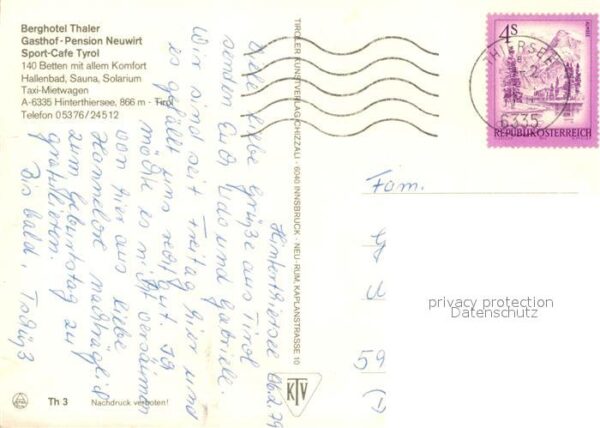 Berghotel Thaler
Gasthof-Pension Neuwirt
Sport-Cafe Tyrol
140 Betten mit allem Komfort
Hallenbad, Sauna, Solarium
Taxi-Mietwagen
A-6335 Hinterthiersee, 866 m - Tirol
Telefon 05376/24512
Hinterthiersee 06.2.79
Viele liebe Grüße aus Tirol
senden Euch Udo und Gabriele.
Wir sind seit Freitag hier und
es gefällt uns recht gut. Ich
möchte es nicht versäumen
von hier aus liebe
Hannelore nachträglich
zum Geburtstag zu
gratulieren.
Bis bald,
TIROLER KUNSTVERLAG CHIZZALI · 6040 INNSBRUCK - NEU-RUM, KAPLANSTRASSE 10
KTV
4S
REPUBLIK ÖSTERREICH
THIERSEE
6335
Fam.
G
U
59
D
privacy protection
Datenschutz
Th 3
Nachdruck verboten!